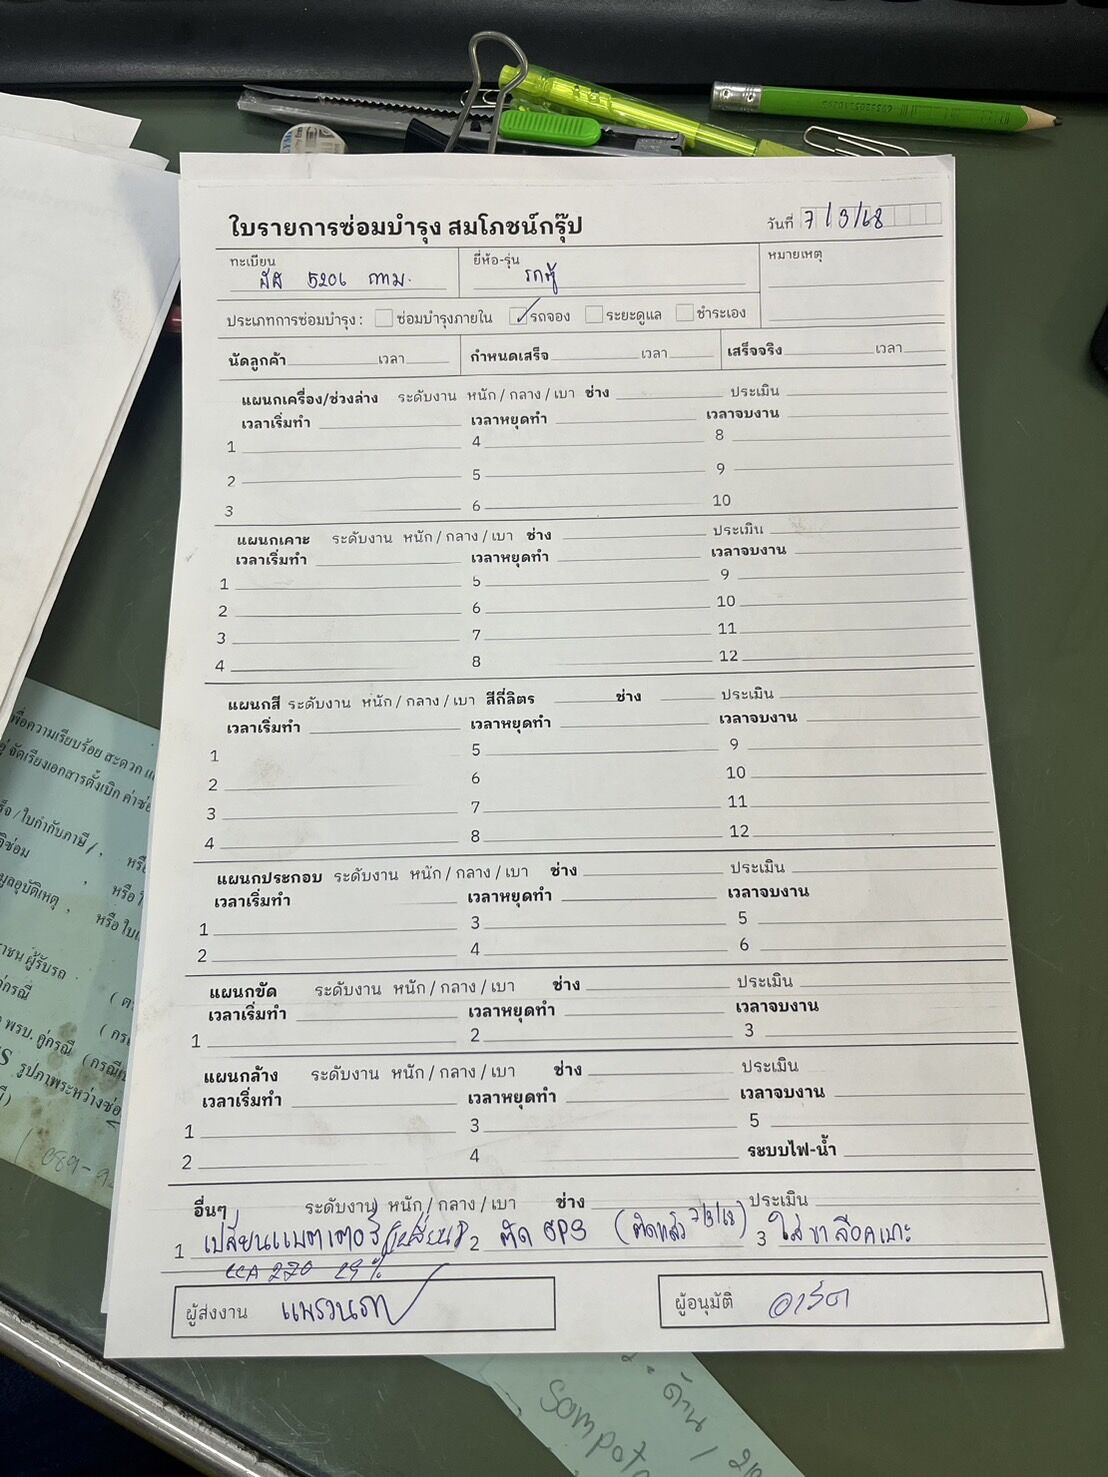 ใบรายการซ่อมบำรุง สมโภชน์กรุ๊ป
วันที่ 7/3/68
ทะเบียน 5201 กทม.
ยี่ห้อ-รุ่น รถตู้
หมายเหตุ
ประเภทการซ่อมบำรุง : ซ่อมบำรุงภายใน รถจอง ระยะดูแล ชำระเอง
นัดลูกค้า เวลา กำหนดเสร็จ เวลา เสร็จจริง เวลา
แผนกเครื่อง/ช่วงล่าง ระดับงาน หนัก / กลาง / เบา ช่าง ประเมิน
เวลาเริ่มทำ เวลาหยุดทำ เวลาจบงาน
1 4 8
2 5 9
3 6 10
แผนกเคาะ ระดับงาน หนัก / กลาง / เบา ช่าง ประเมิน
เวลาเริ่มทำ เวลาหยุดทำ เวลาจบงาน
1 5 9
2 6 10
3 7 11
4 8 12
แผนกสี ระดับงาน หนัก / กลาง / เบา สีกี่ลิตร ช่าง ประเมิน
เวลาเริ่มทำ เวลาหยุดทำ เวลาจบงาน
1 5 9
2 6 10
3 7 11
4 8 12
แผนกประกอบ ระดับงาน หนัก / กลาง / เบา ช่าง ประเมิน
เวลาเริ่มทำ เวลาหยุดทำ เวลาจบงาน
1 3 5
2 4 6
แผนกขัด ระดับงาน หนัก / กลาง / เบา ช่าง ประเมิน
เวลาเริ่มทำ เวลาหยุดทำ เวลาจบงาน
1 2 3
แผนกล้าง ระดับงาน หนัก / กลาง / เบา ช่าง ประเมิน
เวลาเริ่มทำ เวลาหยุดทำ เวลาจบงาน
1 3 5
2 4 ระบบไฟ-น้ำ
อื่นๆ ระดับงาน หนัก / กลาง / เบา ช่าง ประเมิน
1 เปลี่ยนแบตเตอรี่ (เปลี่ยน) 2 ติด GPS (ติดแล้ว 7/3/68) 3 ใส่ขาล็อคเบาะ
CCA 270 29%
ผู้ส่งงาน
ผู้อนุมัติ
พื่อความเรียบร้อย สะดวก
จัดเรียงเอกสารตั้งเบิก ค่าซ่
/ใบกำกับภาษี, หรื
ซ่อม , หรือ
มูลอุบัติเหตุ , หรือ ใบ
ชน ผู้รับรถ
คู่กรณี
พรบ. คู่กรณี (กรณี
รูปภาพระหว่างซ่อ
089-9
ด้าน /
sompot